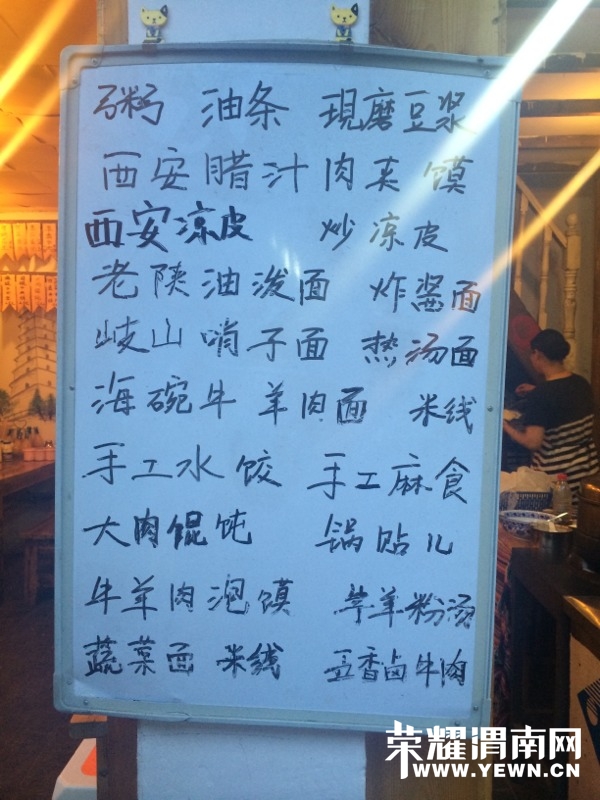 粥 油条 現磨豆浆
西安腊汁肉夹馍
西安凉皮 炒凉皮
老陕油泼面 炸酱面
岐山哨子面 热汤面
海碗牛羊肉面 米线
手工水饺 手工麻食
大肉馄饨 锅贴儿
牛羊肉泡馍 羊粉汤
蔬菜面 米线 五香卤牛肉
荣耀渭南网
WWW.YEWN.CN